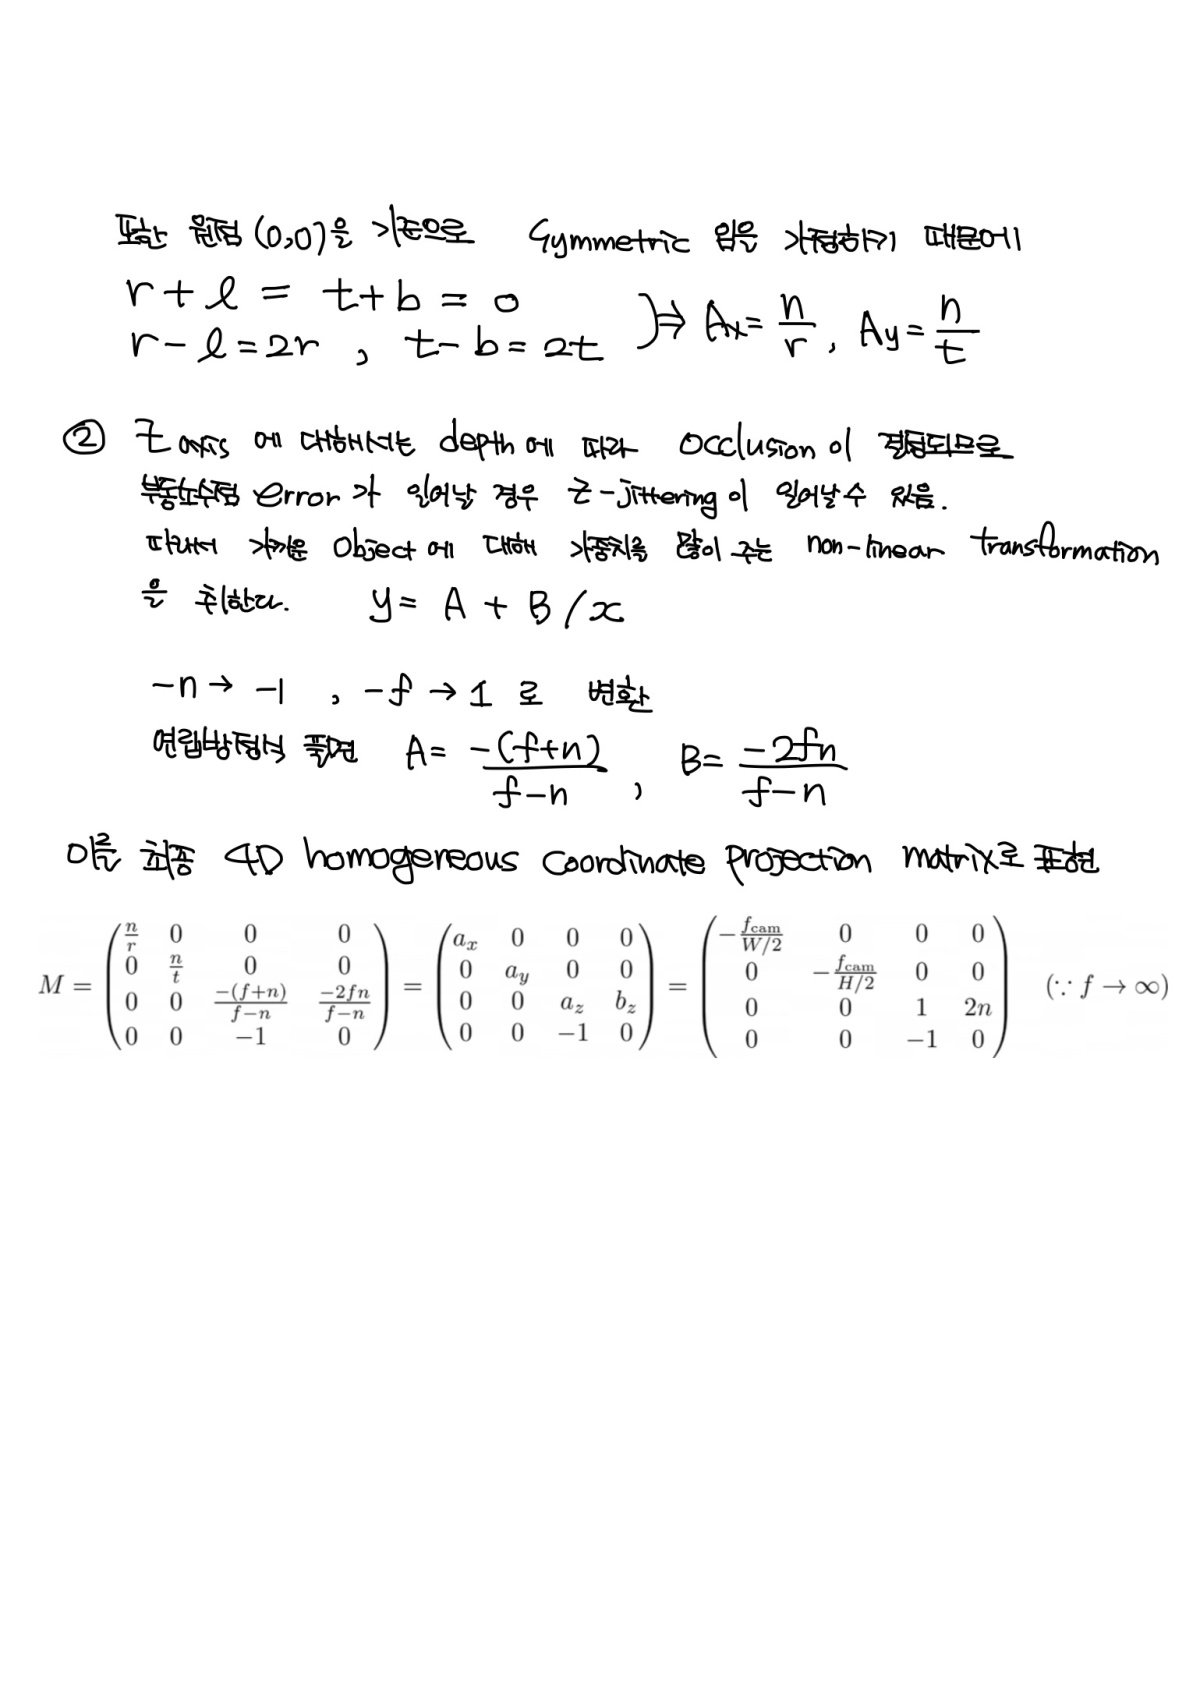 또한 원점 (0,0)을 기준으로 Symmetric 임을 가정하기 때문에
r + l = t + b = 0
r - l = 2r , t - b = 2t } ⇒ Ax = n/r , Ay = n/t
② Z axis 에 대해서는 depth에 따라 occlusion이 결정되므로
부동소수점 error가 일어날 경우 z-jittering이 일어날 수 있음.
따라서 가까운 object에 대해 가중치를 많이 주는 non-linear transformation
을 취한다. y = A + B / x
-n → -1 , -f → 1 로 변환
연립방정식 풀면 A = -(f+n)/(f-n) , B = -2fn/(f-n)
이를 최종 4D homogeneous coordinate projection matrix로 표현
M = ( n/r 0 0 0 ; 0 n/t 0 0 ; 0 0 -(f+n)/(f-n) -2fn/(f-n) ; 0 0 -1 0 ) = ( a_x 0 0 0 ; 0 a_y 0 0 ; 0 0 a_z b_z ; 0 0 -1 0 ) = ( -f_cam/(W/2) 0 0 0 ; 0 -f_cam/(H/2) 0 0 ; 0 0 1 2n ; 0 0 -1 0 ) (∵ f → ∞)